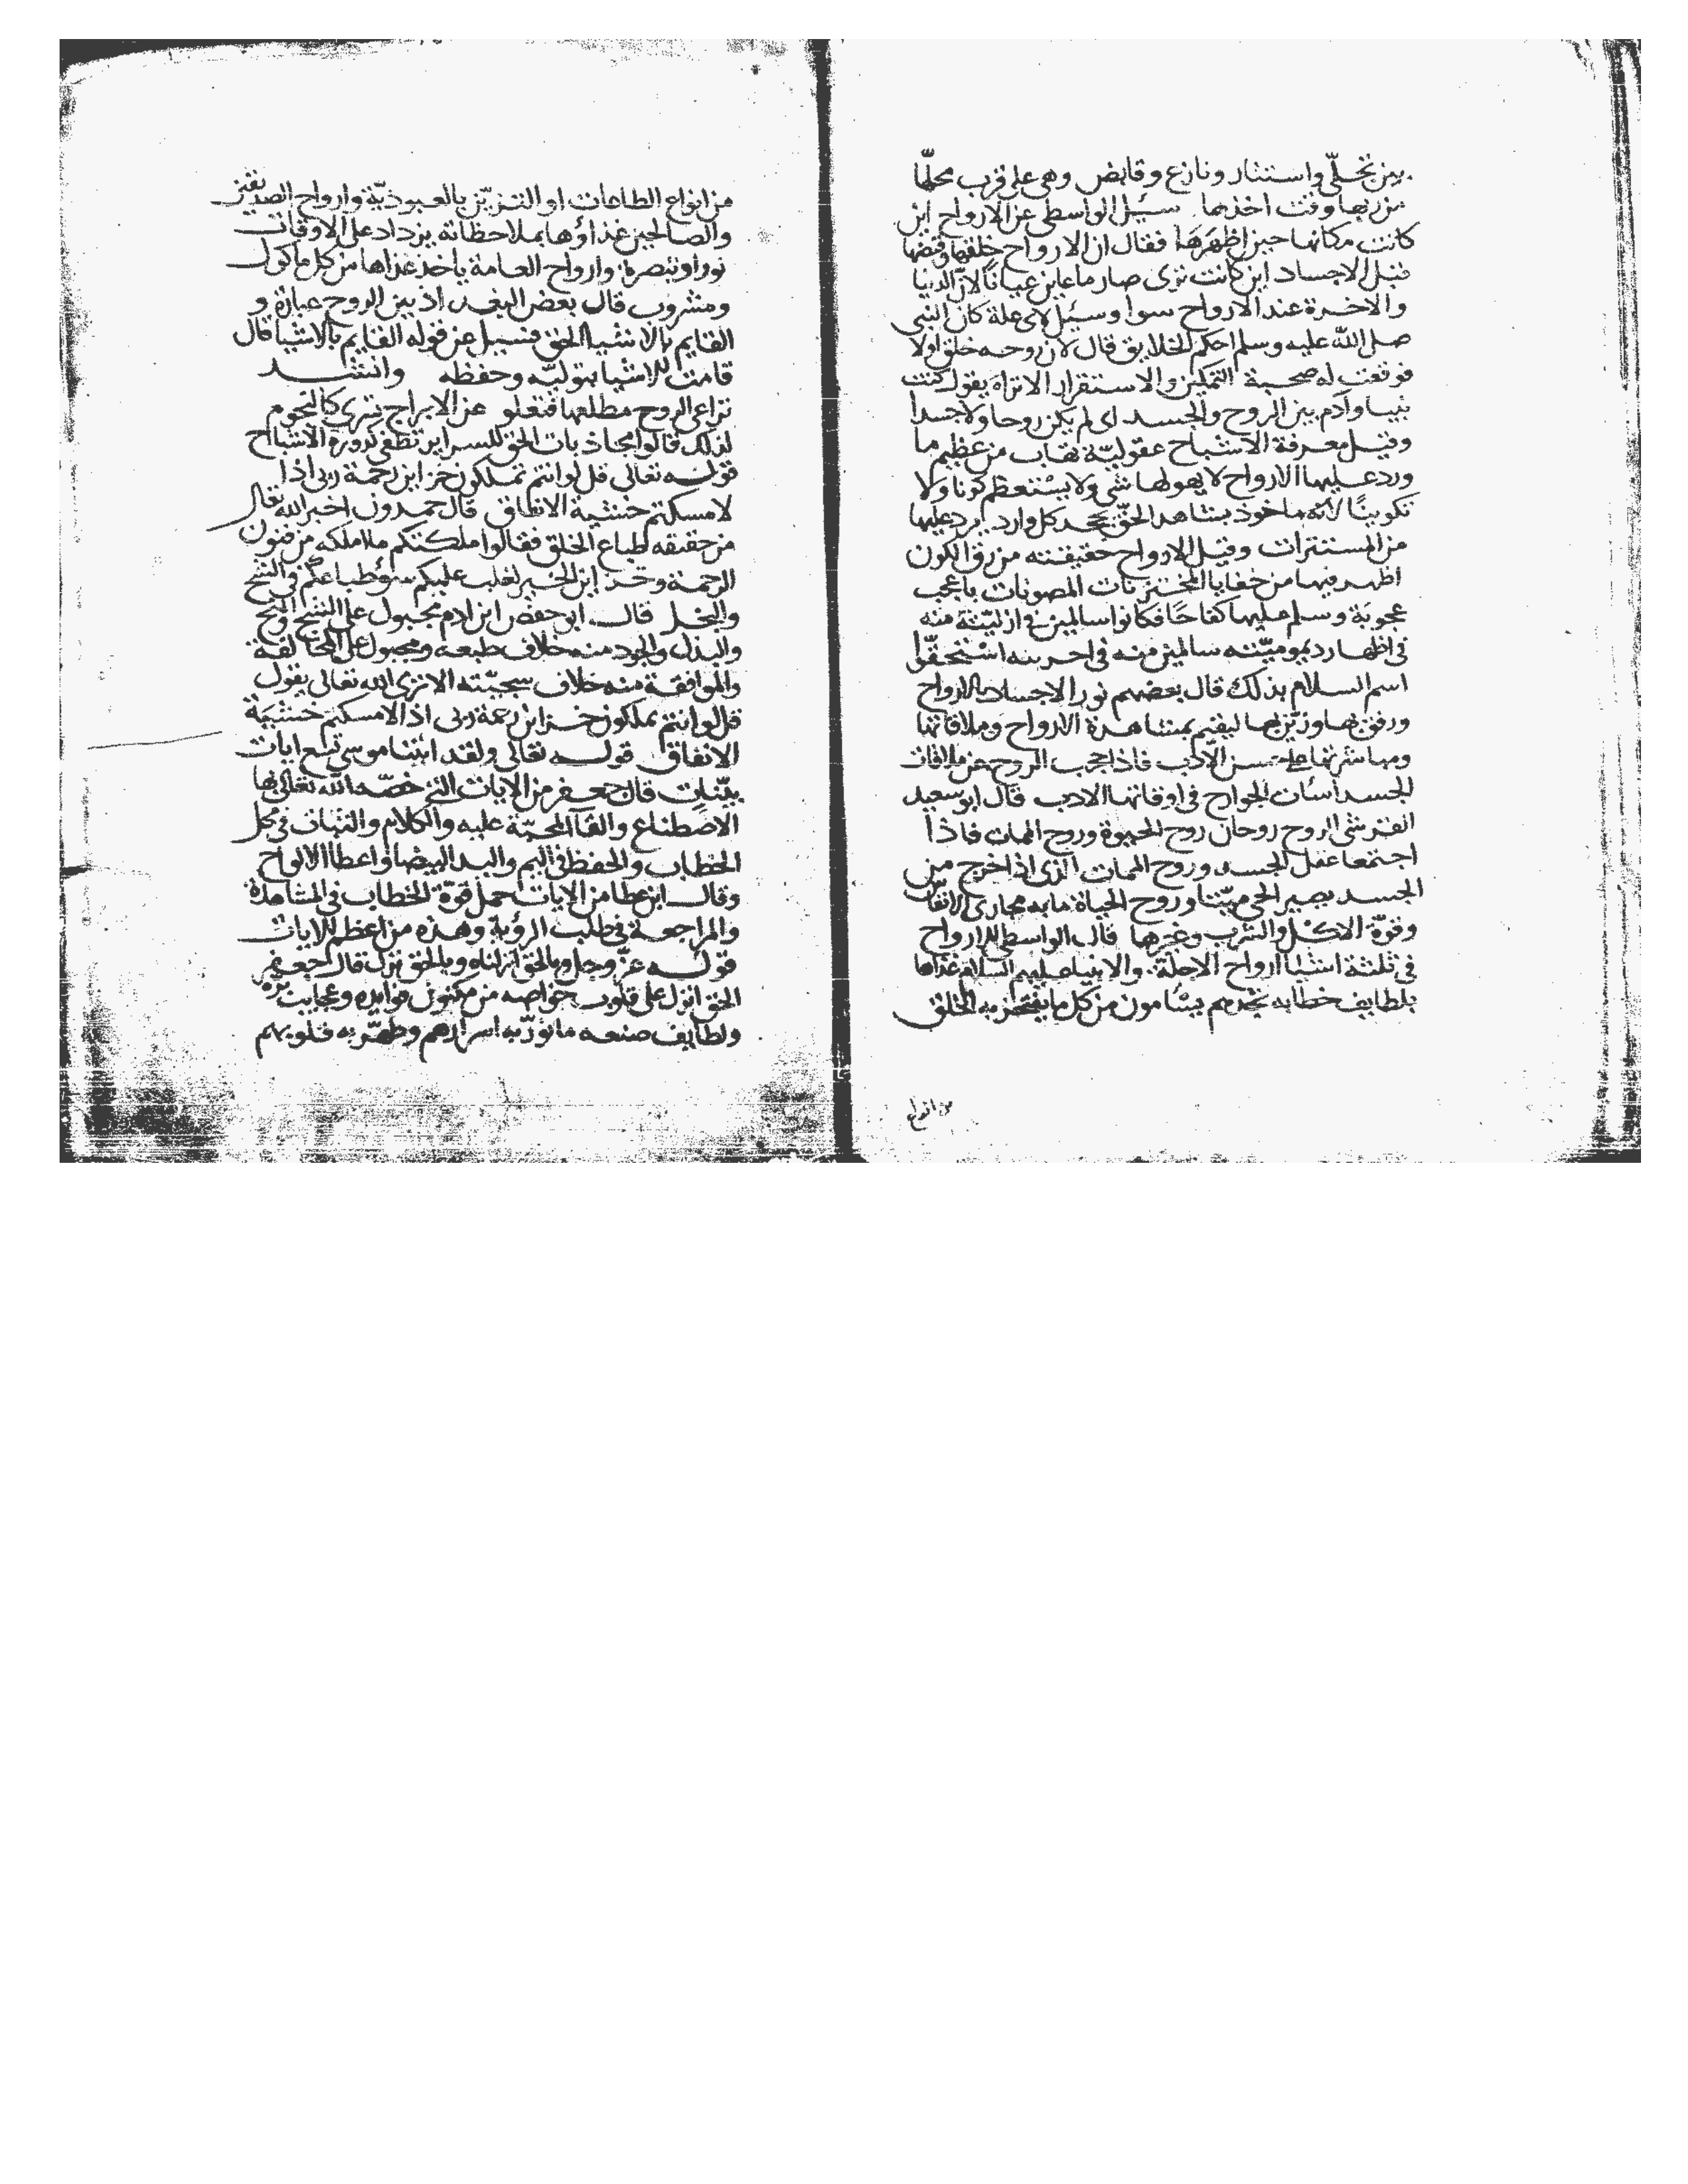 بين تجلّي واستتار ونازع وقابض وهي على قرب محلّها
من ربها وقت اخذها سئل الواسطي عن الارواح اين
كانت مكانها حين اظهرها فقال ان الارواح خلقها وقبضها
قبل الاجساد اين كانت ترى صار ما عاين عيانًا لانّ الدنيا
والاخرة عند الارواح سوا وسئل لاى علة كان النبي
صلى الله عليه وسلم احكم الخلايق قال لان روحه خلق اولا
فوقعت له صحبة التمكين والاستقرار الا تراه يقول كنت
نبيا وآدم بين الروح والجسد اى لم يكن روحا ولا جسدا
وقيل معرفة الاشباح عقوليّة تهاب من عظيم ما
ورد عليها الارواح لا يهولها شي ولا يستعظم كونا ولا
تكوينًا لانه ماخوذ بشاهد الحقّ يجحد كل وارد يرد عليها
من المستترات وقيل الارواح حقيقته من رق الكون
اظهر فيها من خفايا المختزنات المصونات باعجب
عجوبة وسلم عليها كفاحًا فكانوا سالمين في ازليّته منه
في اظهار ديموميّته سالمين منه في اخريته استحقّوا
اسم السلام بذلك قال بعضهم نور الاجساد بالارواح
ورفق بها وزيّن بها ليقيم بمشاهدة الارواح وملاقاتها
ومباشرتها على حسن الادب فاذا حجب الروح عن ملاقات
الجسد اسات الجوارح في اوقاتها الادب قال ابو سعيد
القرشي الروح روحان روح الحيوة وروح الممات فاذا
اجتمعا عقل الجسد وروح الممات الذى اذا خرج من
الجسد يصير الحي ميّتا وروح الحياة ما به مجارى الانفاس
وقوّة الاكل والشرب وغيرها قال الواسطي الارواح
في ثلثة اشيا ارواح الاجلّة والانبيا عليهم السلام غذاها
بلطايف خطابه تجدهم يشامون من كل ما يفتخر به الخلق
من انواع
من انواع الطاعات او التزيّن بالعبوديّة وارواح الصديقين
والصالحين غذاؤها بملاحظاته يزداد على الاوقات
نورا وتبصرة وارواح العامة ياخذ غذاها من كل ماكول
ومشروب قال بعض البغداذيين الروح عبارة و
القايم بالاشيا الحق فسيل عن قوله القايم بالاشيا قال
قامت الاشيا بتوليّه وحفظه وانشد
تراعى الروح مطلعها فتعلو عن الابراج ترى كالنجوم
لذلك قالوا مجاذبات الحق للسراير تطفي نورة الاشباح
قوله تعالى قل لو انتم تملكون خزاين رحمة ربى اذا
لامسكتم خشية الانفاق قال حمدون اخبر الله تعالى
من حقيقه طباع الخلق فقالوا ملكتكم ما املكه من فنون
الرحمة وخزاين الخير لغلب عليكم سوء طباعكم في الشح
والبخل قال ابو حفص ابن ادم مجبول على الشح والبخل
والبذل والجود منه خلاف طبعه ومجبول على المخالفة
والموافقة منه خلاف سجيّته الا ترى الله تعالى يقول
قل لو انتم تملكون خزاين رحمة ربى اذا لامسكتم خشية
الانفاق قوله تعالى ولقد اتينا موسى تسع ايات
بيّنات قال جعفر من الايات التي خصّه الله تعالى بها
الاصطناع والقا المحبّة عليه والكلام والثبات في محل
الخطاب والحفظ في اليم واليد البيضا واعطا الالواح
وقال ابن عطا من الايات حمل قوّة الخطاب في المشاهدة
والمراجعة في طلب الرؤية وهذه من اعظم الايات
قوله عزّ وجل وبالحق انزلناه وبالحق نزل قال جعفر
الحق انزل على قلوب خواصه من مكنون فوايده وعجايب برّه
ولطايف صنعه ما نوّر به اسرارهم وطهّر به قلوبهم